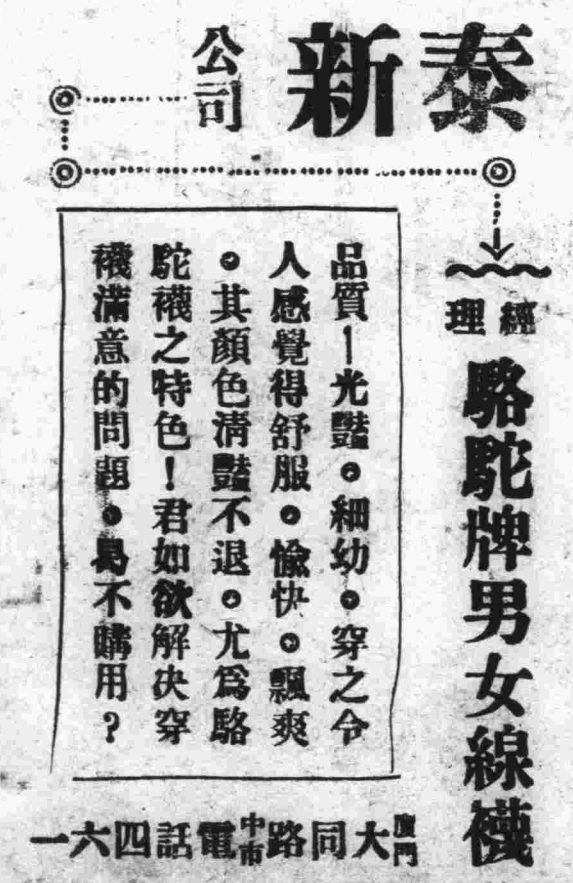 泰新公司
經理
駱駝牌男女線襪
品質—光豔。細幼。穿之令
人感覺得舒服。愉快。飄爽
。其顏色清豔不退。尤為駱
駝襪之特色！君如欲解決穿
襪滿意的問題。曷不購用？
廈門大同路中市電話四六一